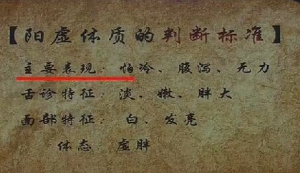 【阳虚体质的判断标准】
主要表现：怕冷、腹泻、无力
舌诊特征：淡、嫩、胖大
面部特征：白、发亮
体态：虚胖